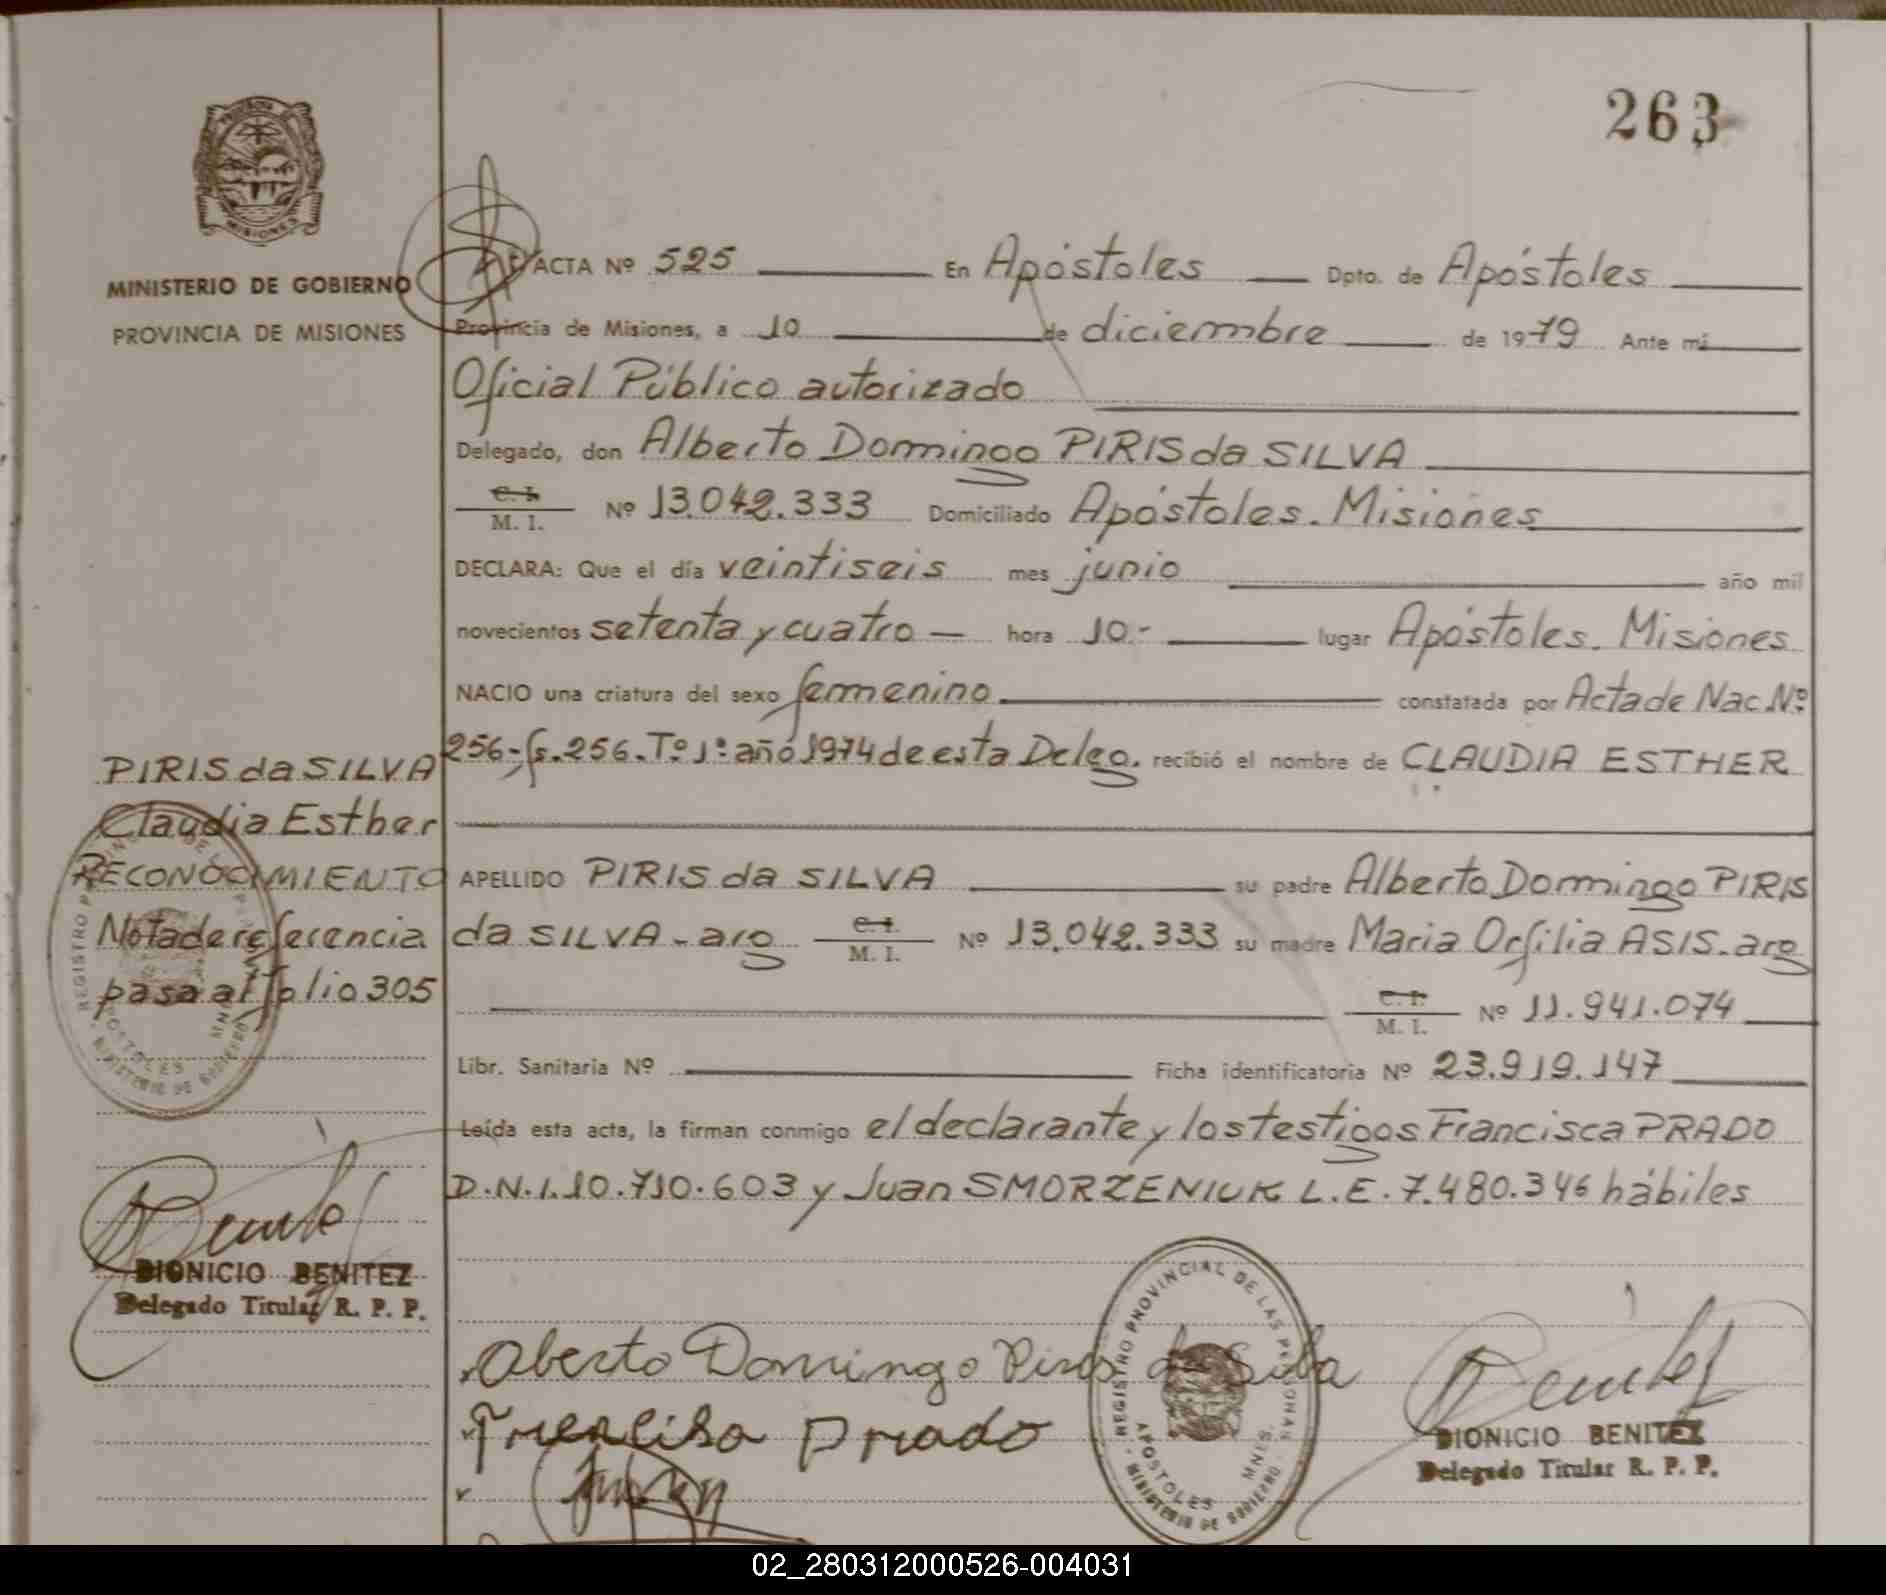 263
MISIONES
MINISTERIO DE GOBIERNO
PROVINCIA DE MISIONES
ACTA Nº 525 En Apóstoles Dpto. de Apóstoles
Provincia de Misiones, a 10 de diciembre de 1979 Ante mi
Oficial Público autorizado
Delegado, don Alberto Domingo PIRIS da SILVA
C. I.
M. I. Nº 13.042.333 Domiciliado Apóstoles. Misiones
DECLARA: Que el día veintiseis mes junio año mil
novecientos setenta y cuatro — hora 10.- lugar Apóstoles. Misiones
NACIO una criatura del sexo femenino constatada por Acta de Nac Nº
256-fs.256. Tº 1º año 1974 de esta Deleg. recibió el nombre de CLAUDIA ESTHER
APELLIDO PIRIS da SILVA su padre Alberto Domingo PIRIS
da SILVA - arg C. I.
M. I. Nº 13.042.333 su madre Maria Orfilia ASIS. arg
C. I.
M. I. Nº 11.941.074
Libr. Sanitaria Nº Ficha identificatoria Nº 23.919.147
Leída esta acta, la firman conmigo el declarante y los testigos Francisca PRADO
D.N.I. 10.710.603 y Juan SMORZENIUK L.E. 7.480.346 hábiles
PIRIS da SILVA
Claudia Esther
RECONOCIMIENTO
Nota de referencia
pasa al folio 305
REGISTRO PROVINCIAL DE LAS PERSONAS
APOSTOLES MNES.
MINISTERIO DE GOBIERNO
DIONICIO BENITEZ
Delegado Titular R. P. P.
Alberto Domingo Piris da Silba
Francisca Prado
REGISTRO PROVINCIAL DE LAS PERSONAS
APOSTOLES MNES.
MINISTERIO DE GOBIERNO
DIONICIO BENITEZ
Delegado Titular R. P. P.
02_280312000526-004031